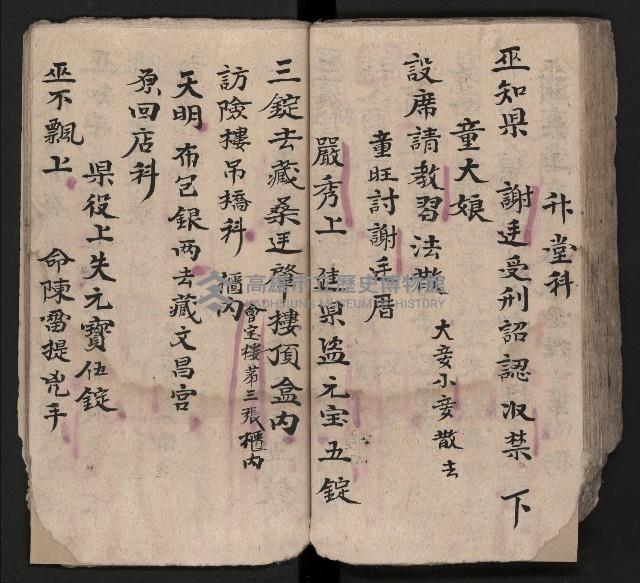 升堂科
巫知県 謝廷受刑詔認収禁 下
童大娘
設席請教習法散 大妾小妾散去
童旺討謝廷厝
嚴秀上 住県盜元宝五錠
三錠去藏桑廷 樓頂盒內
訪險樓吊搞科 櫃內 會宝樓第三張櫃內
天明布包銀两去藏文昌宮
原回店科
県役上失元寶伍錠
巫不飄上 命陳雷提兇手
高雄市立歷史博物館
KAOHSIUNG MUSEUM OF HISTORY